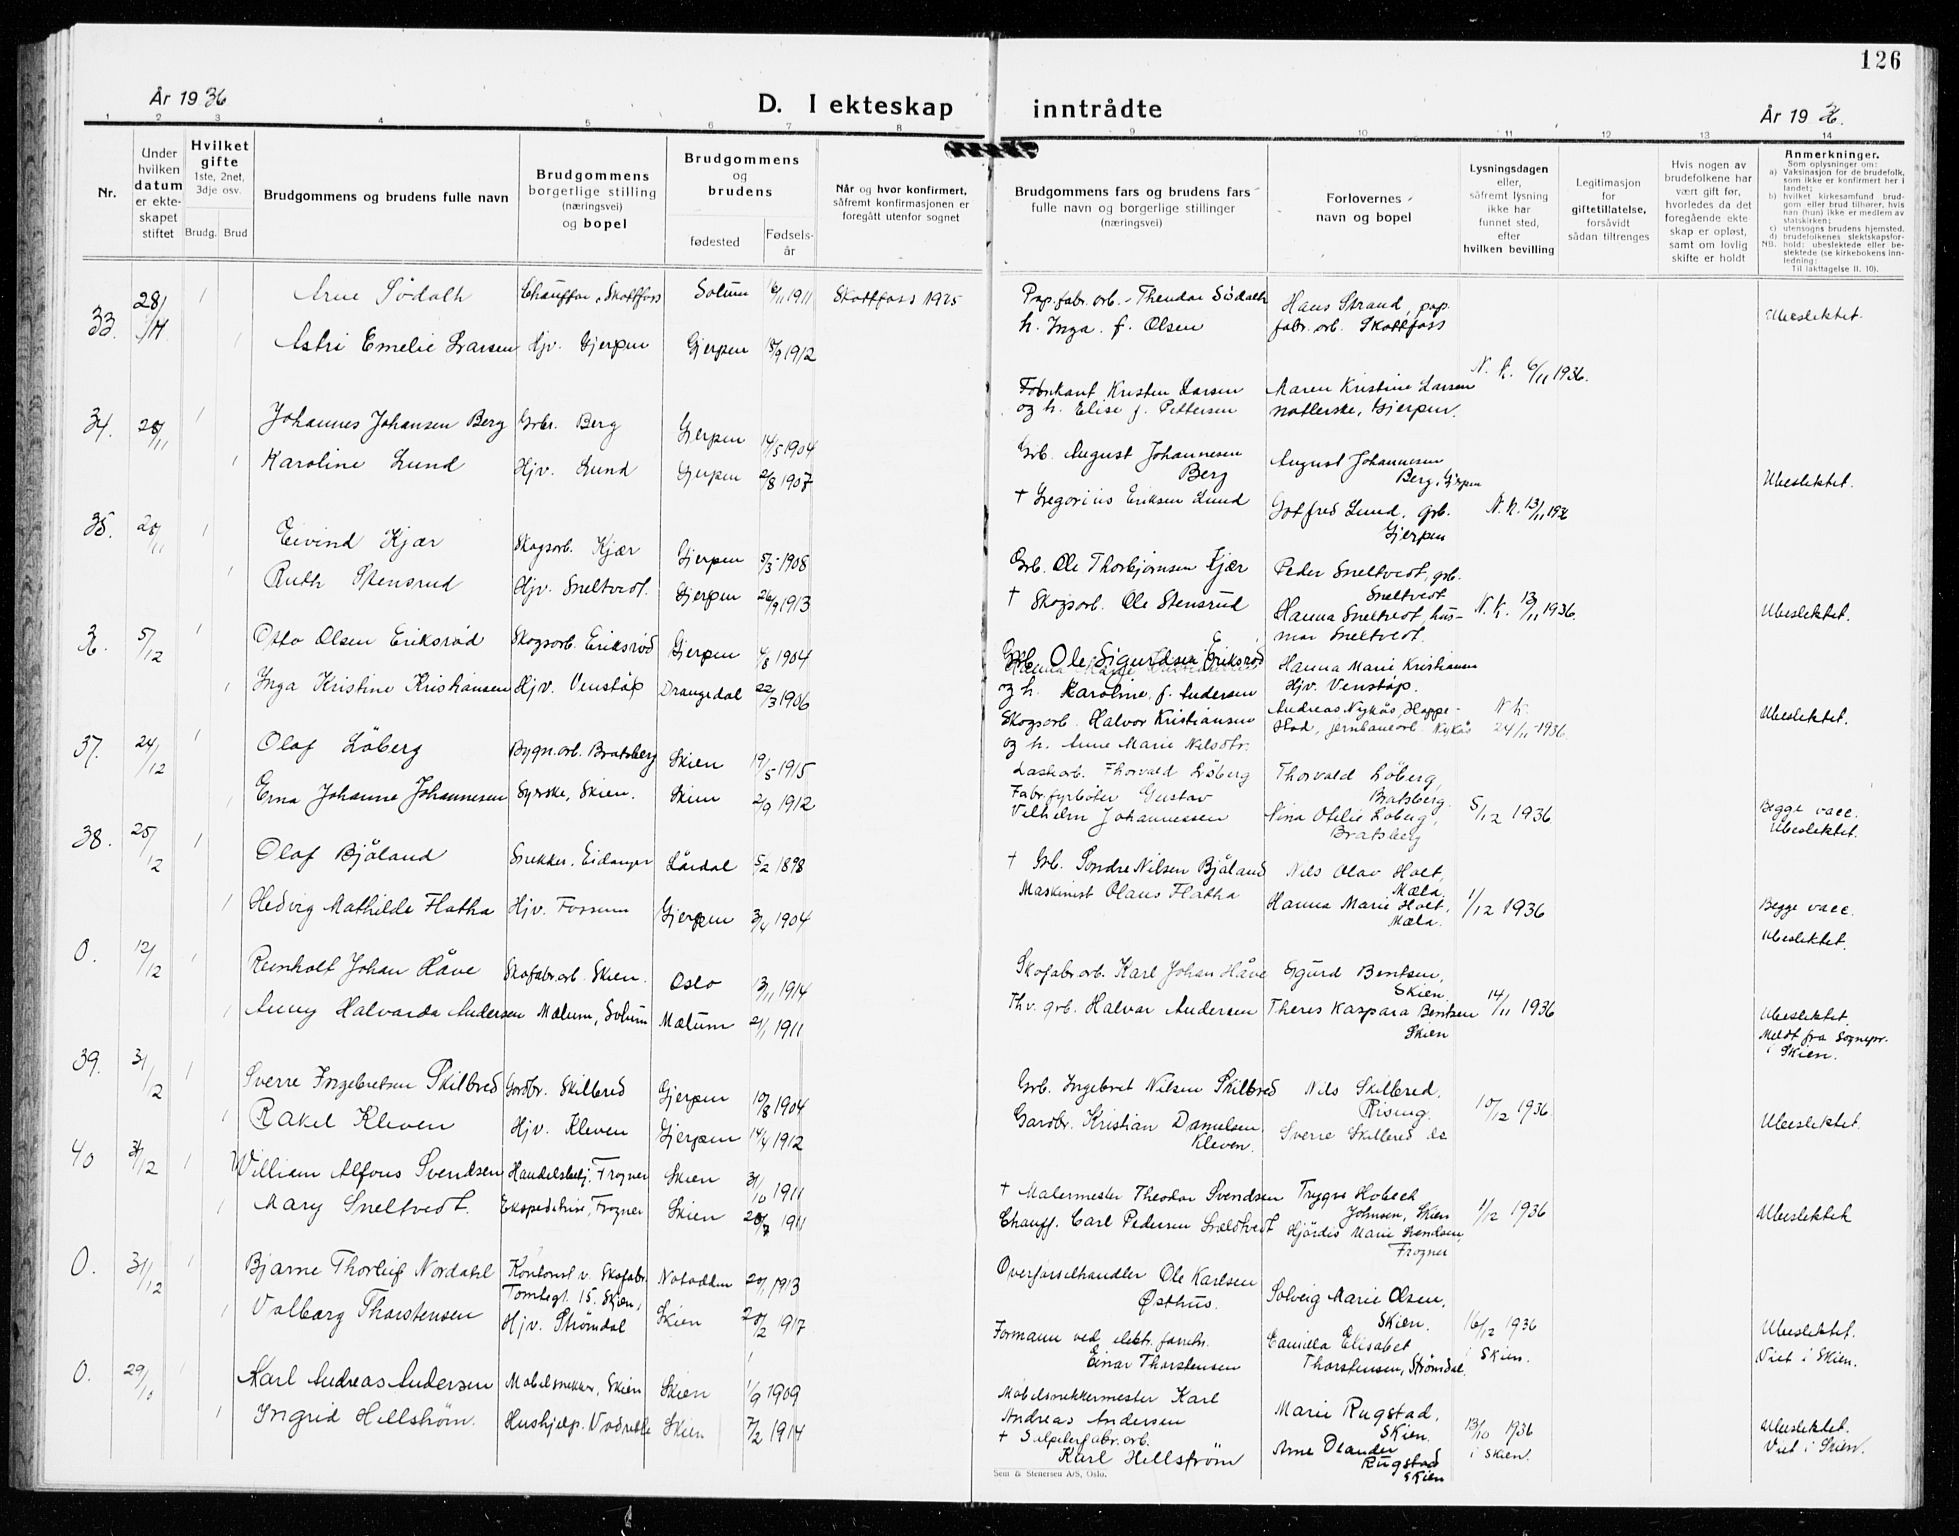 126
År 1936
D. I ekteskap inntrådte
År 1936.
1 2 3 4 5 6 7 8 9 10 11 12 13 14
Nr.
Under hvilken datum er ekteskapet stiftet
Hvilket gifte 1ste, 2net, 3dje osv.
Brudg. Brud
Brudgommens og brudens fulle navn
Brudgommens borgerlige stilling (næringsvei) og bopel
Brudgommens og brudens
fødested
Fødselsår
Når og hvor konfirmert, såfremt konfirmasjonen er foregått utenfor sognet
Brudgommens fars og brudens fars fulle navn og borgerlige stillinger (næringsvei)
Forlovernes navn og bopel
Lysningsdagen eller, såfremt lysning ikke har funnet sted, efter hvilken bevilling
Legitimasjon for giftetillatelse, forsåvidt sådan tiltrenges
Hvis nogen av brudefolkene har vært gift før, hvorledes da det foregående ekteskap er opløst, samt om lovlig skifte er holdt
Anmerkninger.
Som oplysninger om:
a) Vaksinasjon for de brudefolk, som ikke er konfirmert her i landet;
b) hvilket kirkesamfund brudgom eller brud tilhører, hvis han (hun) ikke er medlem av statskirken;
c) utensogns brudens hjemsted.
d) brudefolkenes slektskapsforhold: ubeslektede eller beslektede (se kirkebokens innledning: Til iakttagelse II. 10).
NB.
33. 28/11 1 Arne Södalh Chauffør, Skotfoss Solum 16/11 1911 Skotfoss 1925
1 Astri Emelie Larsen Hjv. Gjerpen Gjerpen 18/9 1912
Pap.fabr.arb. Theodor Södalh
h. Inga. f. Olsen
Fabrikant Kristen Larsen
og h. Elise f. Pettersen
Hans Strand, pap.
fabr. arb. Skotfoss
Maren Kristine Larsen
Gjerpen.
N. k. 6/11 1936.
Ubeslektet.
34. 28/11 1 Johannes Johansen Berg Grbr. Berg Gjerpen 14/5 1904
1 Karoline Lund Hjv. Lund Gjerpen 2/8 1907
Grb. August Johannesen
Berg
† Gregorius Eriksen Lund
August Johannesen
Berg, Gjerpen
Gotfred Lund, grb.
Gjerpen
N. k. 13/11 1936
Ubeslektet.
35. 28/11 1 Eivind Kjær Skogsarb. Kjær Gjerpen 5/3 1908
1 Ruth Stensrud Hjv. Sneltvedt. Gjerpen 26/9 1913
Grb. Ole Thorbjørnsen Kjær
† Skogsarb. Ole Stensrud
Peder Sneltvedt, grb.
Sneltvedt
Hanna Sneltvedt, hus-
mor Sneltvedt.
N. k. 13/11 1936.
Ubeslektet.
36. 5/12 1 Otto Olsen Eriksrød Skogsarb. Eriksrød Gjerpen 4/8 1904
1 Inga Kristine Kristiansen Hjv. Venstøp Drangedal 22/3 1906
Grb. Ole Sigurdsen Eriksrød
og h. Karoline, f. Andersen
Skogsarb. Halvor Kristiansen
og h. Anne Marie Nilsdtr.
Hanna Marie Kristiansen
Hjv. Venstøp.
Andreas Nykås, Hoppe-
stad, jernbanearb. Nykås
N. k.
24/11 1936.
Ubeslektet.
37. 24/12 1 Olaf Löberg Bygn.arb. Bratsberg Skien 19/5 1915
1 Erna Johanne Johannesen Syerske, Skien. Skien 2/9 1912
Lastearb. Thorvald Löberg
Fabr.fyrbøter Gustav
Vilhelm Johannessen
Thorvald Löberg,
Bratsberg.
Nina Otelie Löberg,
Bratsberg
5/12 1936
Begge vacc.
Ubeslektet.
38. 25/12 1 Olaf Bjåland Snekker, Eidanger Lårdal 5/2 1898
1 Hedvig Mathilde Flatha Hjv. Fossum Gjerpen 3/4 1904
† Grb. Sondre Nilsen Bjåland
Maskinist Olaus Flatha
Nils Olav Holt,
Mæla.
Hanna Marie Holt,
Mæla.
1/12 1936
Begge vacc.
Ubeslektet.
0. 12/12 1 Reinholt Johan Håve Skofabr.arb. Skien. Oslo 13/11 1914
1 Anny Halvarda Andersen Mælum, Solum Mælum 21/1 1911
Skofabr.arb. Karl Johan Håve
Thv. grb. Halvar Andersen
Sigurd Bentsen,
Skien.
Theres Kaspara Bentsen
Skien
14/11 1936
Ubeslektet.
Meldt fra Sognepr.
i Skien.
39. 31/12 1 Sverre Ingebretsen Skilbred Gardbr. Skilbred Gjerpen 10/8 1904
1 Rakel Kleven Hjv. Kleven Gjerpen 14/4 1912
Grb. Ingebret Nilsen Skilbred
Gardbr. Kristian Danielsen
Kleven.
Nils Skilbred,
Rising.
Sverre Skilbred do
10/12 1936
Ubeslektet.
40 31/12 1 William Alfons Svendsen Handelsbetj. Frogner Skien 31/10 1911
1 Mary Sneltvedt. Ekspeditrise, Frogner Skien 28/7 1911
† Malermester Theodor Svendsen
Chauff. Carl Pedersen Sneldtvedt
Trygve Hobech
Johnsen, Skien
Hjördis Marie Svendsen,
Frogner
1/12 1936
Ubeslektet
0. 31/12 1 Bjarne Thorleif Nordahl Kontorist v. Skofabr. Notodden 20/1 1913
Tomtegt. 15. Skien,
1 Valborg Thorstensen Hjv. Strømdal Skien 28/2 1917
Overførselhandler Ole Karlsen
Østhus.
Formann ved elektr. forretn.
Einar Thorstensen
Solveig Marie Olsen,
Skien.
Camilla Elisabet
Thorstensen, Strømdal
16/12 1936
i Skien.
Ubeslektet.
Viet i Skien.
0. 29/10 1 Karl Andreas Andersen Møbelsnekker, Skien Skien 1/9 1909
1 Ingrid Hellstrøm. Hushjelp. Vadrette Skien 7/2 1914
Møbelsnekkermester Karl
Andreas Andersen
† Salpeterfabr.arb.
Karl Hellstrøm
Marie Rugstad,
Skien.
Arne Deander
Rugstad
Skien
13/10 1936
i Skien.
Ubeslektet.
Viet i Skien.
Sem & Stenersen A/S, Oslo.